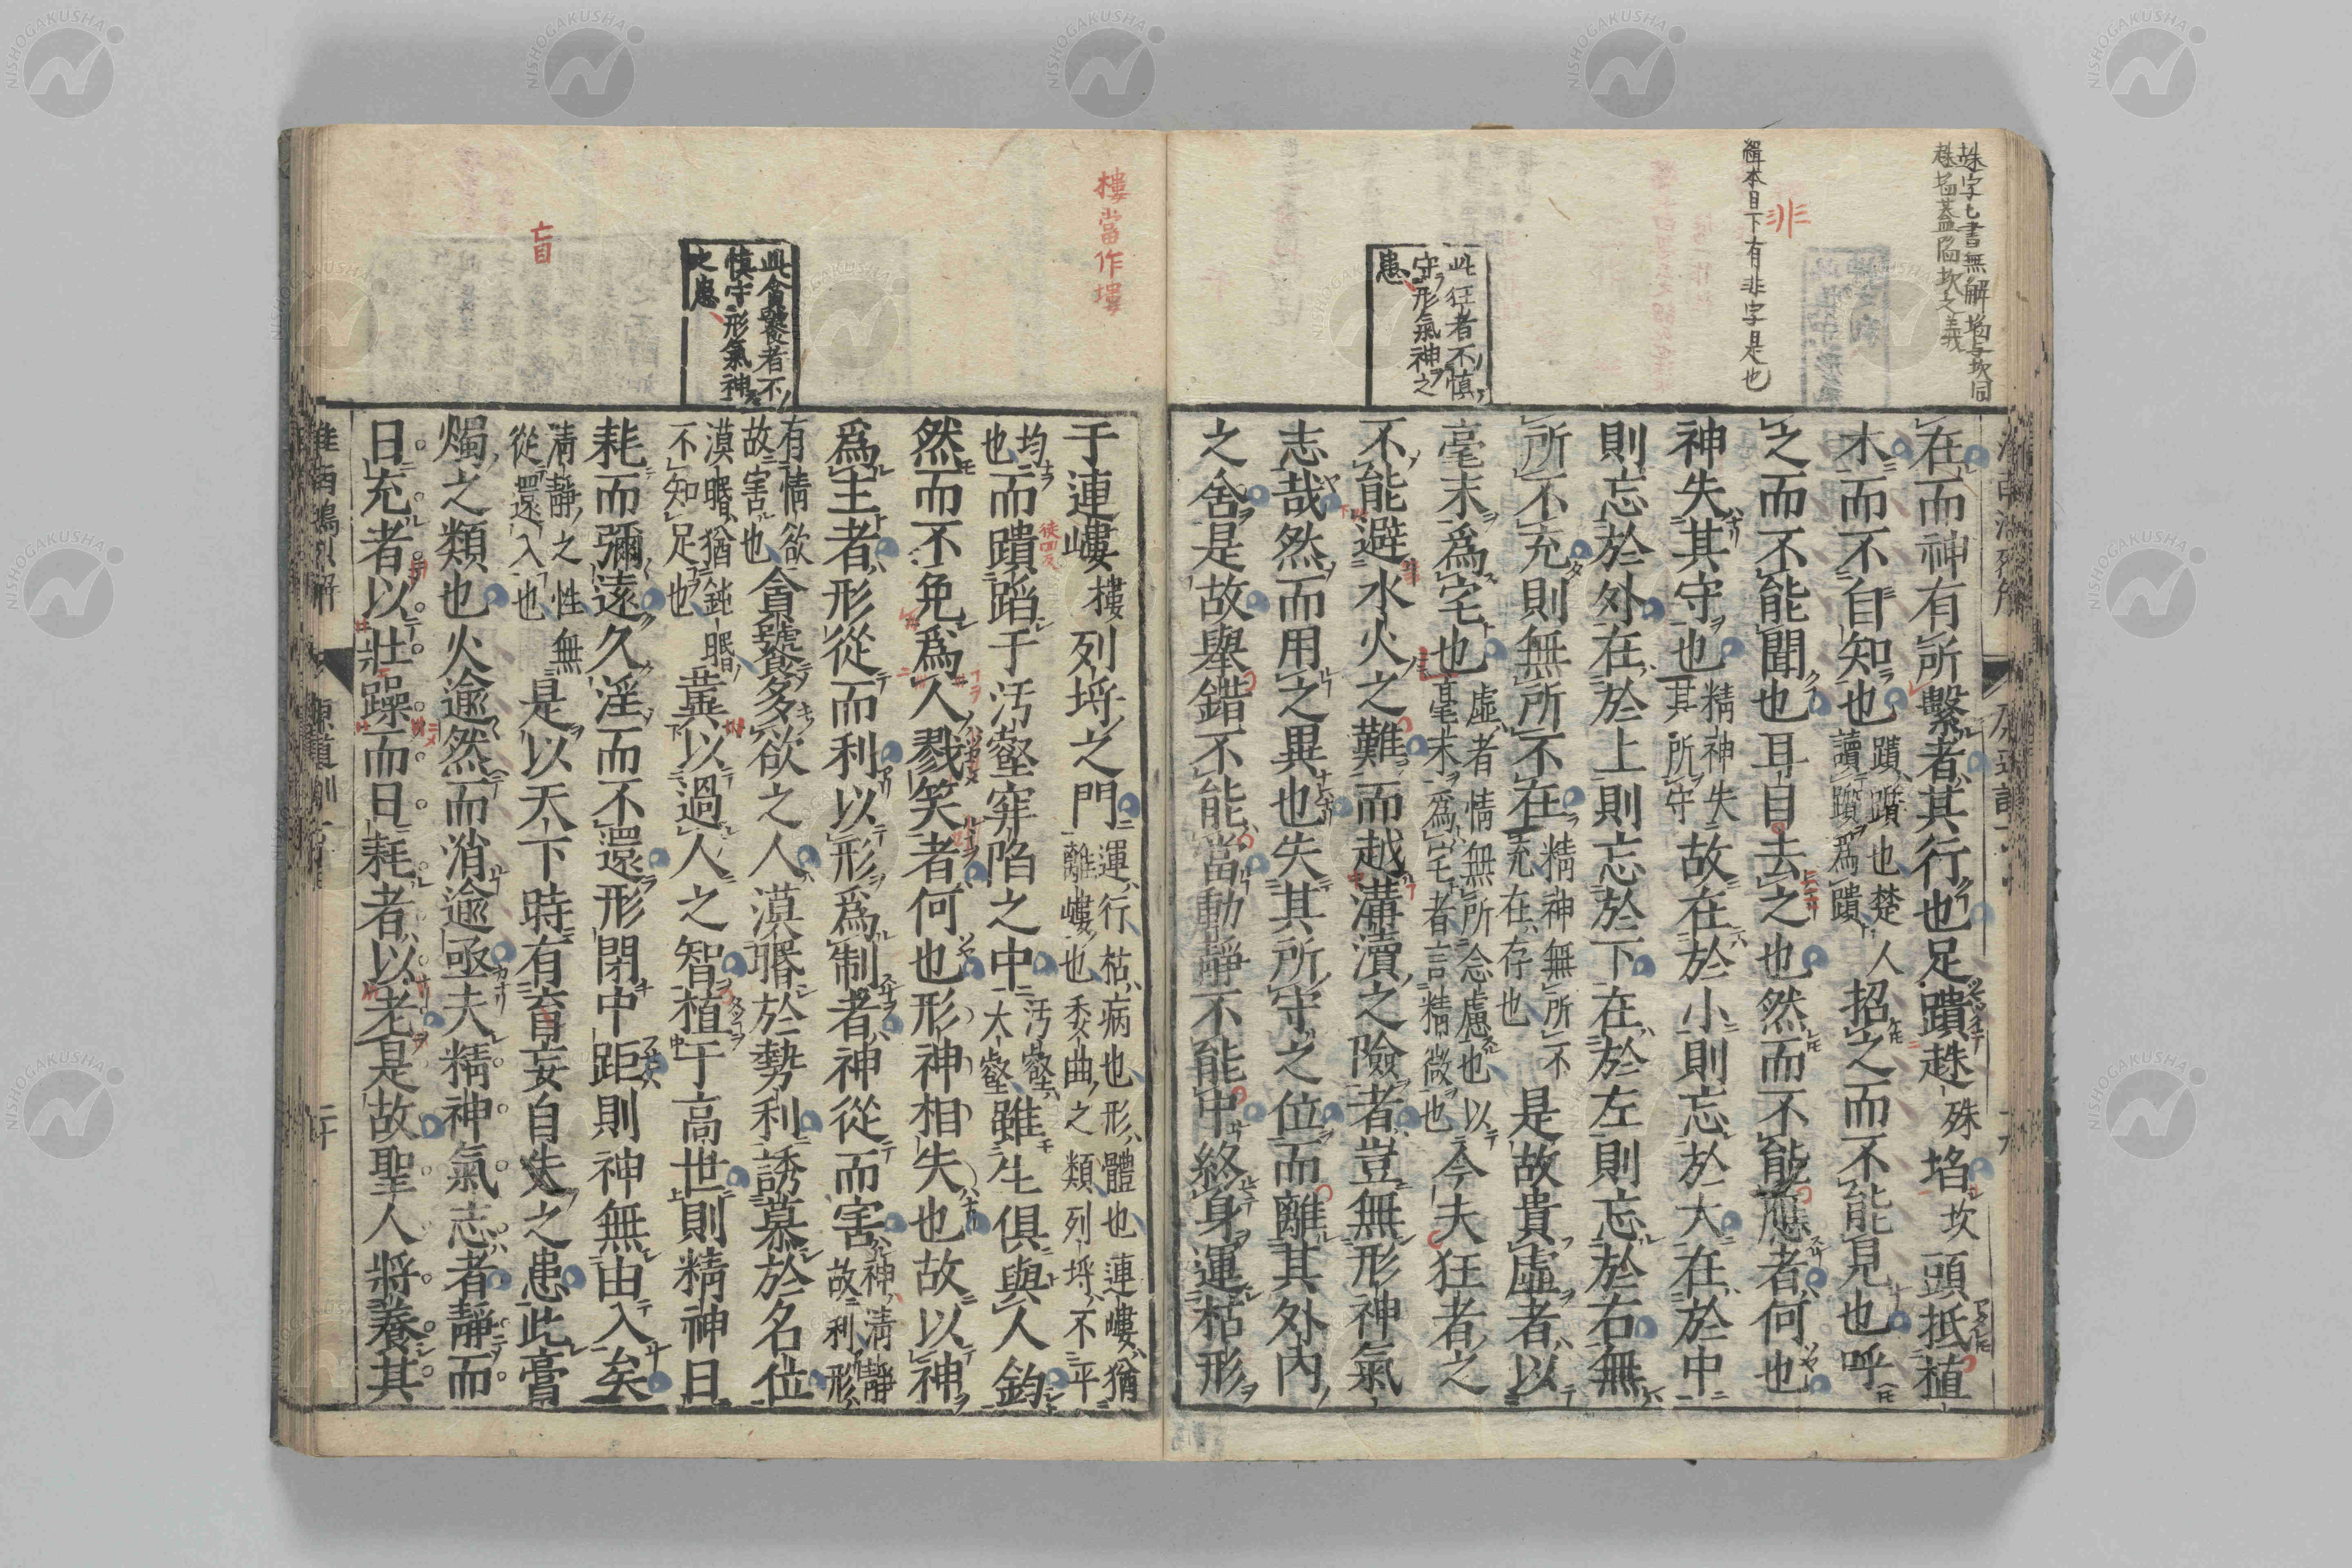 趎字七書無解埳与坎同
趎埳蓋陥坎之義
非
緝本目下有非字是也
此狂者不慎
守形氣神之
患
在而神有所繫者其行也足蹪趎殊埳坎頭抵植
木而不自知也蹪躓也楚人讀躓爲蹪招之而不能見也呼
之而不能聞也耳目去之也然而不能應者何也
神失其守也精神失其所守故在於小則忘於大在於中
則忘於外在於上則忘於下在於左則忘於右無
所不充則無所不在精神無所不充在存也是故貴虛者以
毫末爲宅也虛者情無所念慮也以毫末爲宅者言精微也今夫狂者之
不能避水火之難而越溝瀆之險者豈無形神氣
志哉然而用之異也失其所守之位而離其外內
之舍是故舉錯不能當動靜不能中終身運枯形
樓當作塿
此貪饕者不
慎守形氣神
之患
盲
于連嶁樓列埒之門運行枯病也形體也連嶁猶離嶁也委曲之類列埒不平
均也而蹪蹈于汚壑穽陷之中汚壑大壑雖生俱與人鈞
徒回反
然而不免爲人戮笑者何也形神相失也故以神
爲主者形從而利以形爲制者神從而害神清靜故利形
有情欲故害也貪饕多欲之人漠睧於勢利誘慕於名位
漠睧猶鈍睧不知足也兾以過人之智植于高世則精神日
耗而彌遠久淫而不還形閉中距則神無由入矣
清靜之性無從還入也是以天下時有育妄自失之患此膏
燭之類也火逾然而消逾亟夫精神氣志者靜而
日充者以壯躁而日耗者以老是故聖人將養其
原道訓
二十